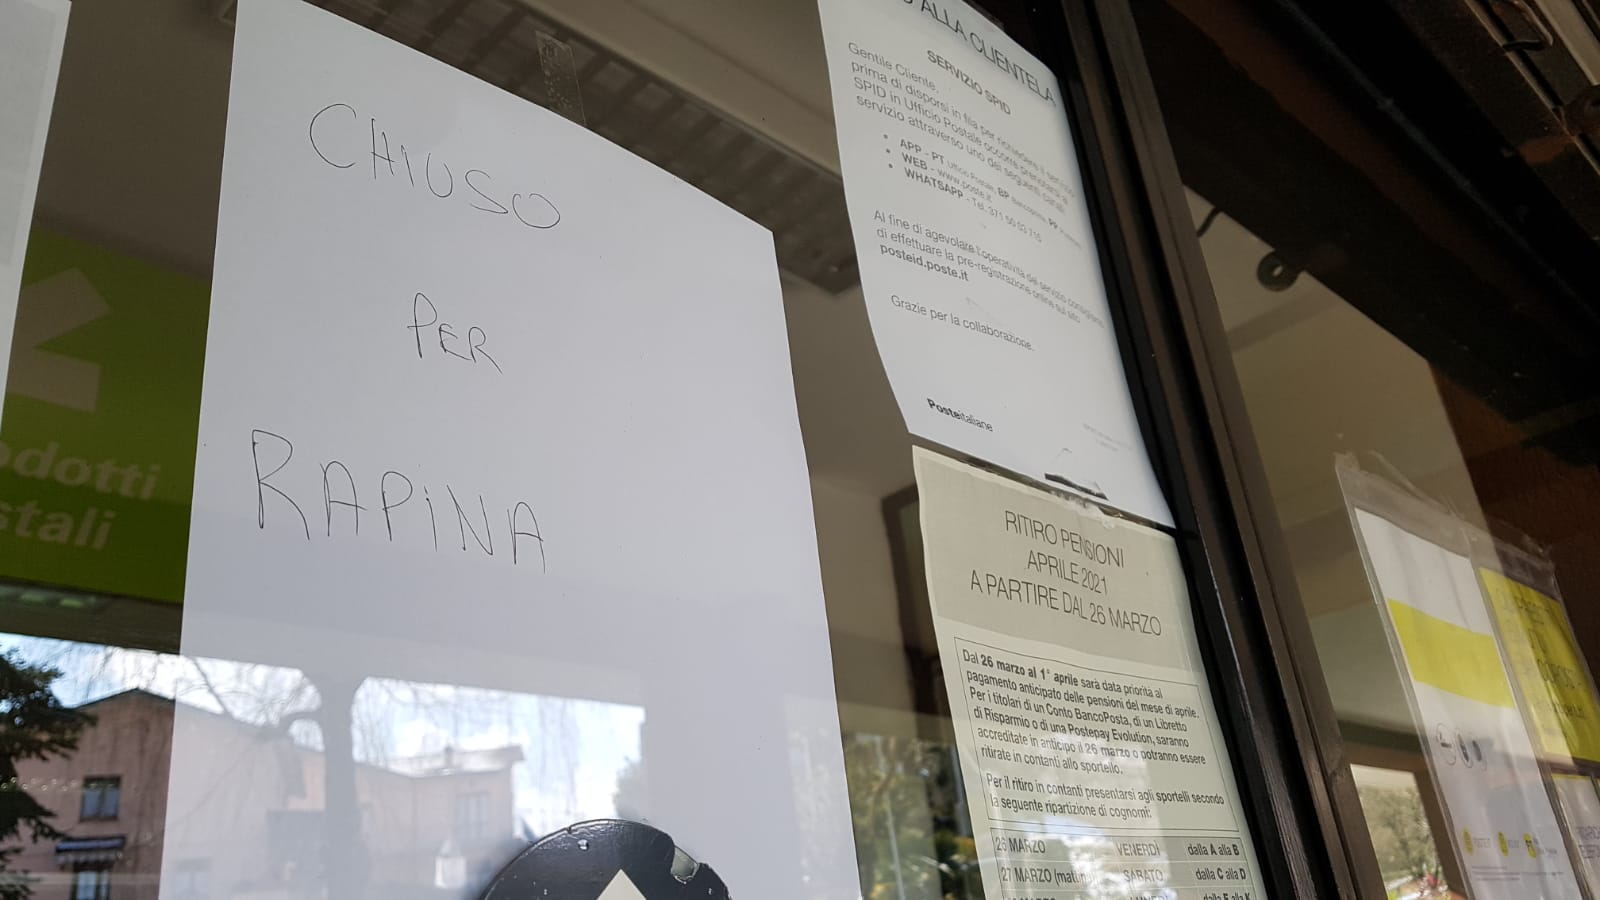 CHIUSO
PER
RAPINA
ALLA CLIENTELA
SERVIZIO SPID
Gentile Cliente,
prima di disporsi in fila per richiedere il servizio
SPID in Ufficio Postale occorre prenotarsi al
servizio attraverso uno dei seguenti canali:
• APP - PT Ufficio Postale, BP Bancoposta, PP
• WEB - www.poste.it
• WHATSAPP - Tel. 371 50 03 715
Al fine di agevolare l'operatività del servizio consigliamo
di effettuare la pre-registrazione online sul sito
posteid.poste.it
Grazie per la collaborazione.
Posteitaliane
RITIRO PENSIONI
APRILE 2021
A PARTIRE DAL 26 MARZO
Dal 26 marzo al 1° aprile sarà data priorità al
pagamento anticipato delle pensioni del mese di aprile.
Per i titolari di un Conto BancoPosta, di un Libretto
di Risparmio o di una Postepay Evolution, saranno
accreditate in anticipo il 26 marzo o potranno essere
ritirate in contanti allo sportello.
Per il ritiro in contanti presentarsi agli sportelli secondo
la seguente ripartizione di cognomi:
26 MARZO VENERDÌ dalla A alla B
27 MARZO (mattina) SABATO dalla C alla D
odotti
stali